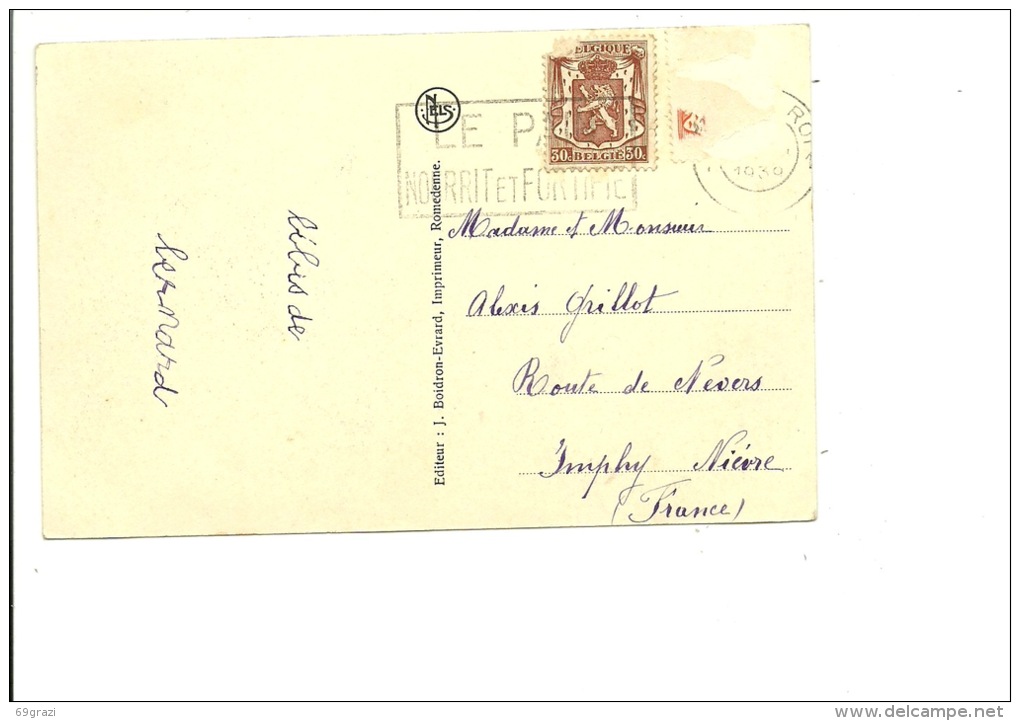 bibis de
bernard
NELS
Editeur : J. Boidron-Evrard, Imprimeur, Romedenne.
BELGIQUE
30c BELGIË 30c
LE PA
NOURRIT ET FORTIFIE
RO
1939
Madame et Monsieur
Alexis Grillot
Route de Nevers
Imphy Nièvre
(France)
69grazi
delcampe.net